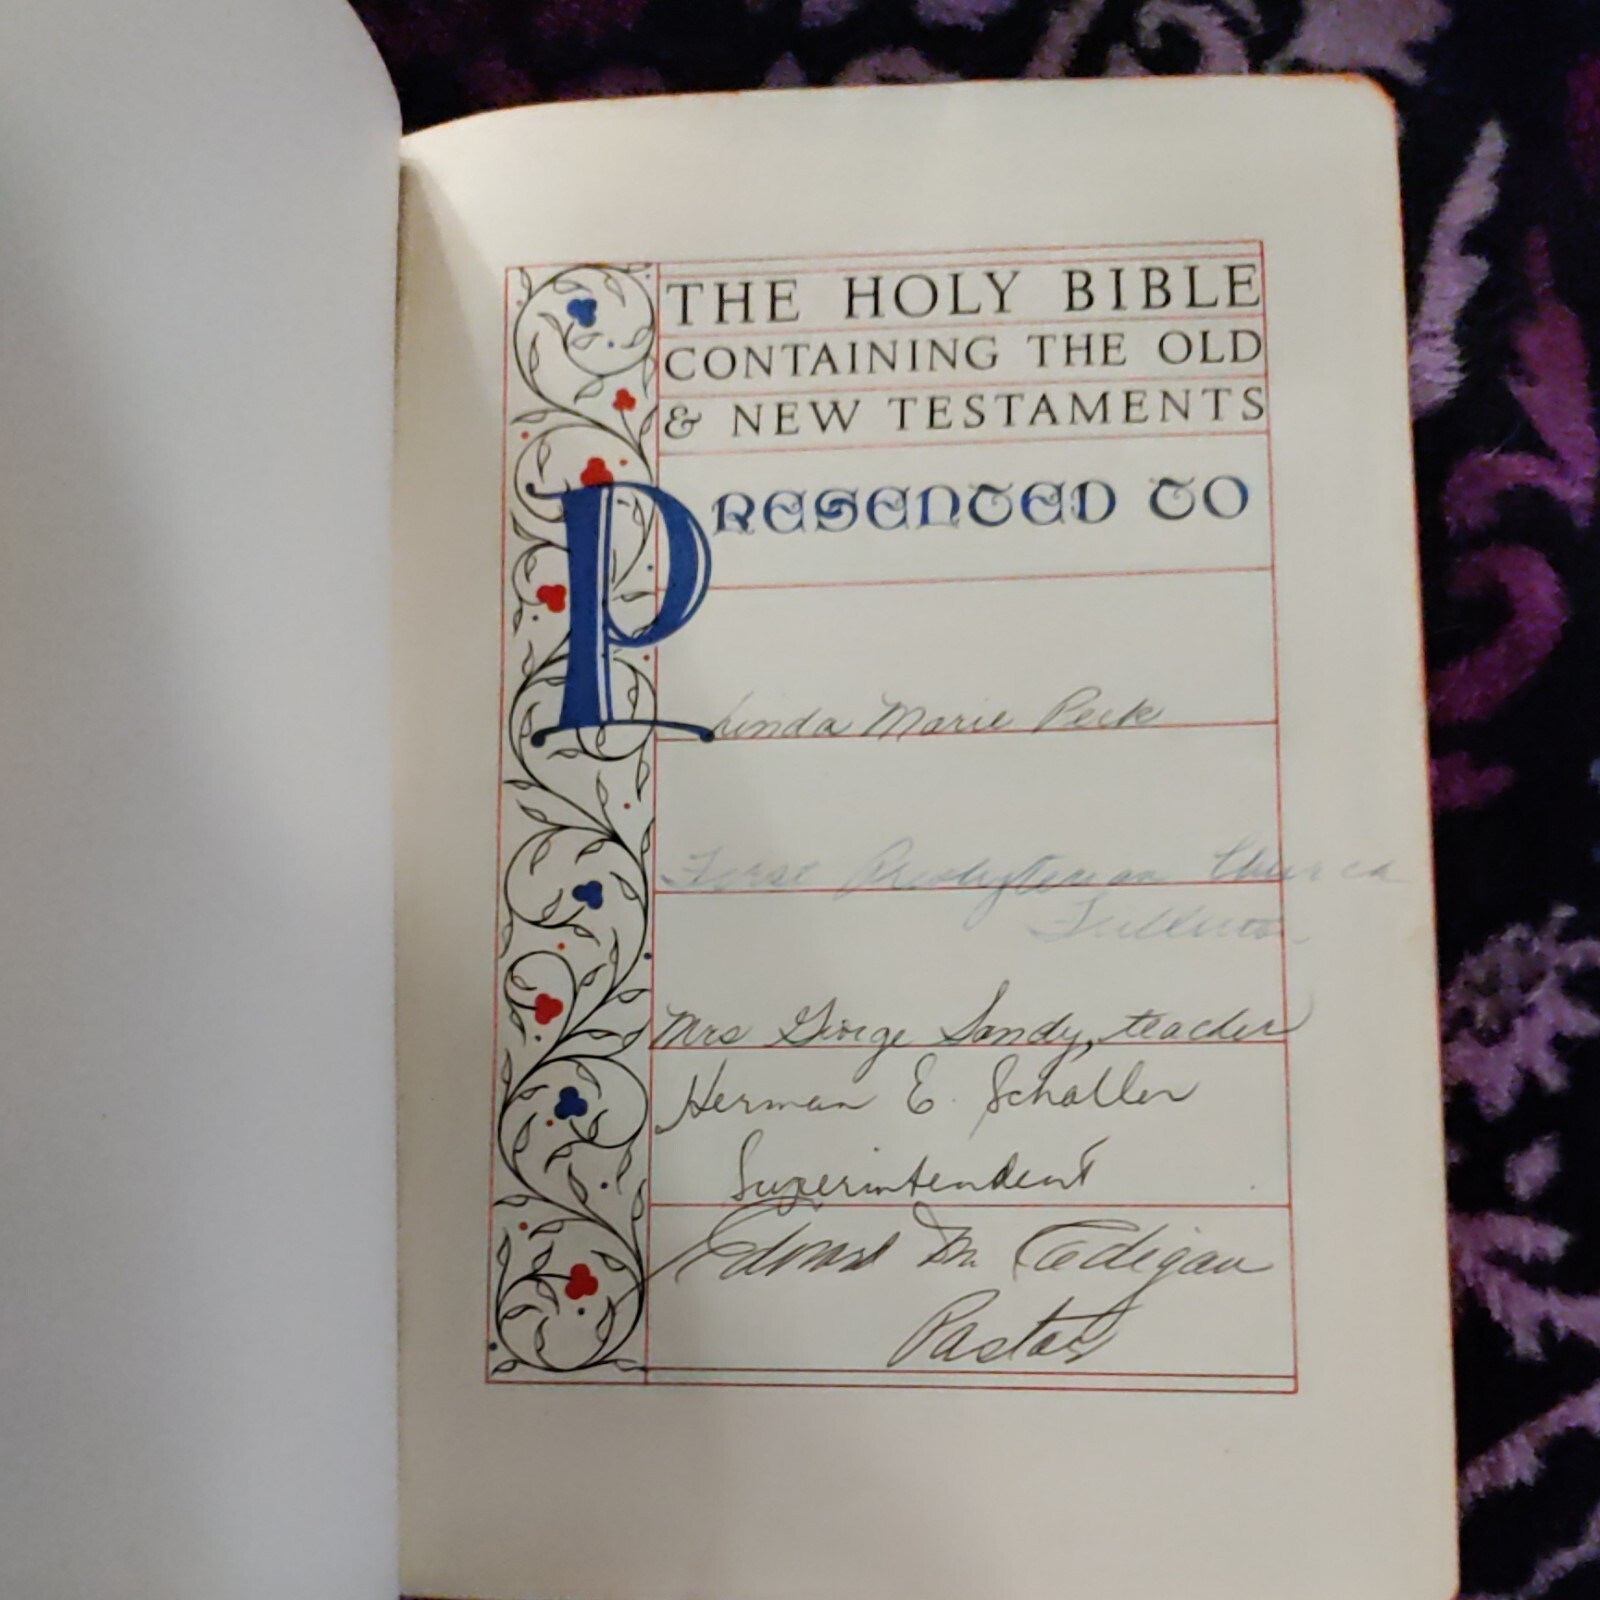 THE HOLY BIBLE
CONTAINING THE OLD
& NEW TESTAMENTS
PRESENTED TO
Linda Marie Peck
First Presbyterian Church
Mrs George Sandy, teacher
Herman E. Schaller
Superintendent
Edward M. Cadigan
Pastor